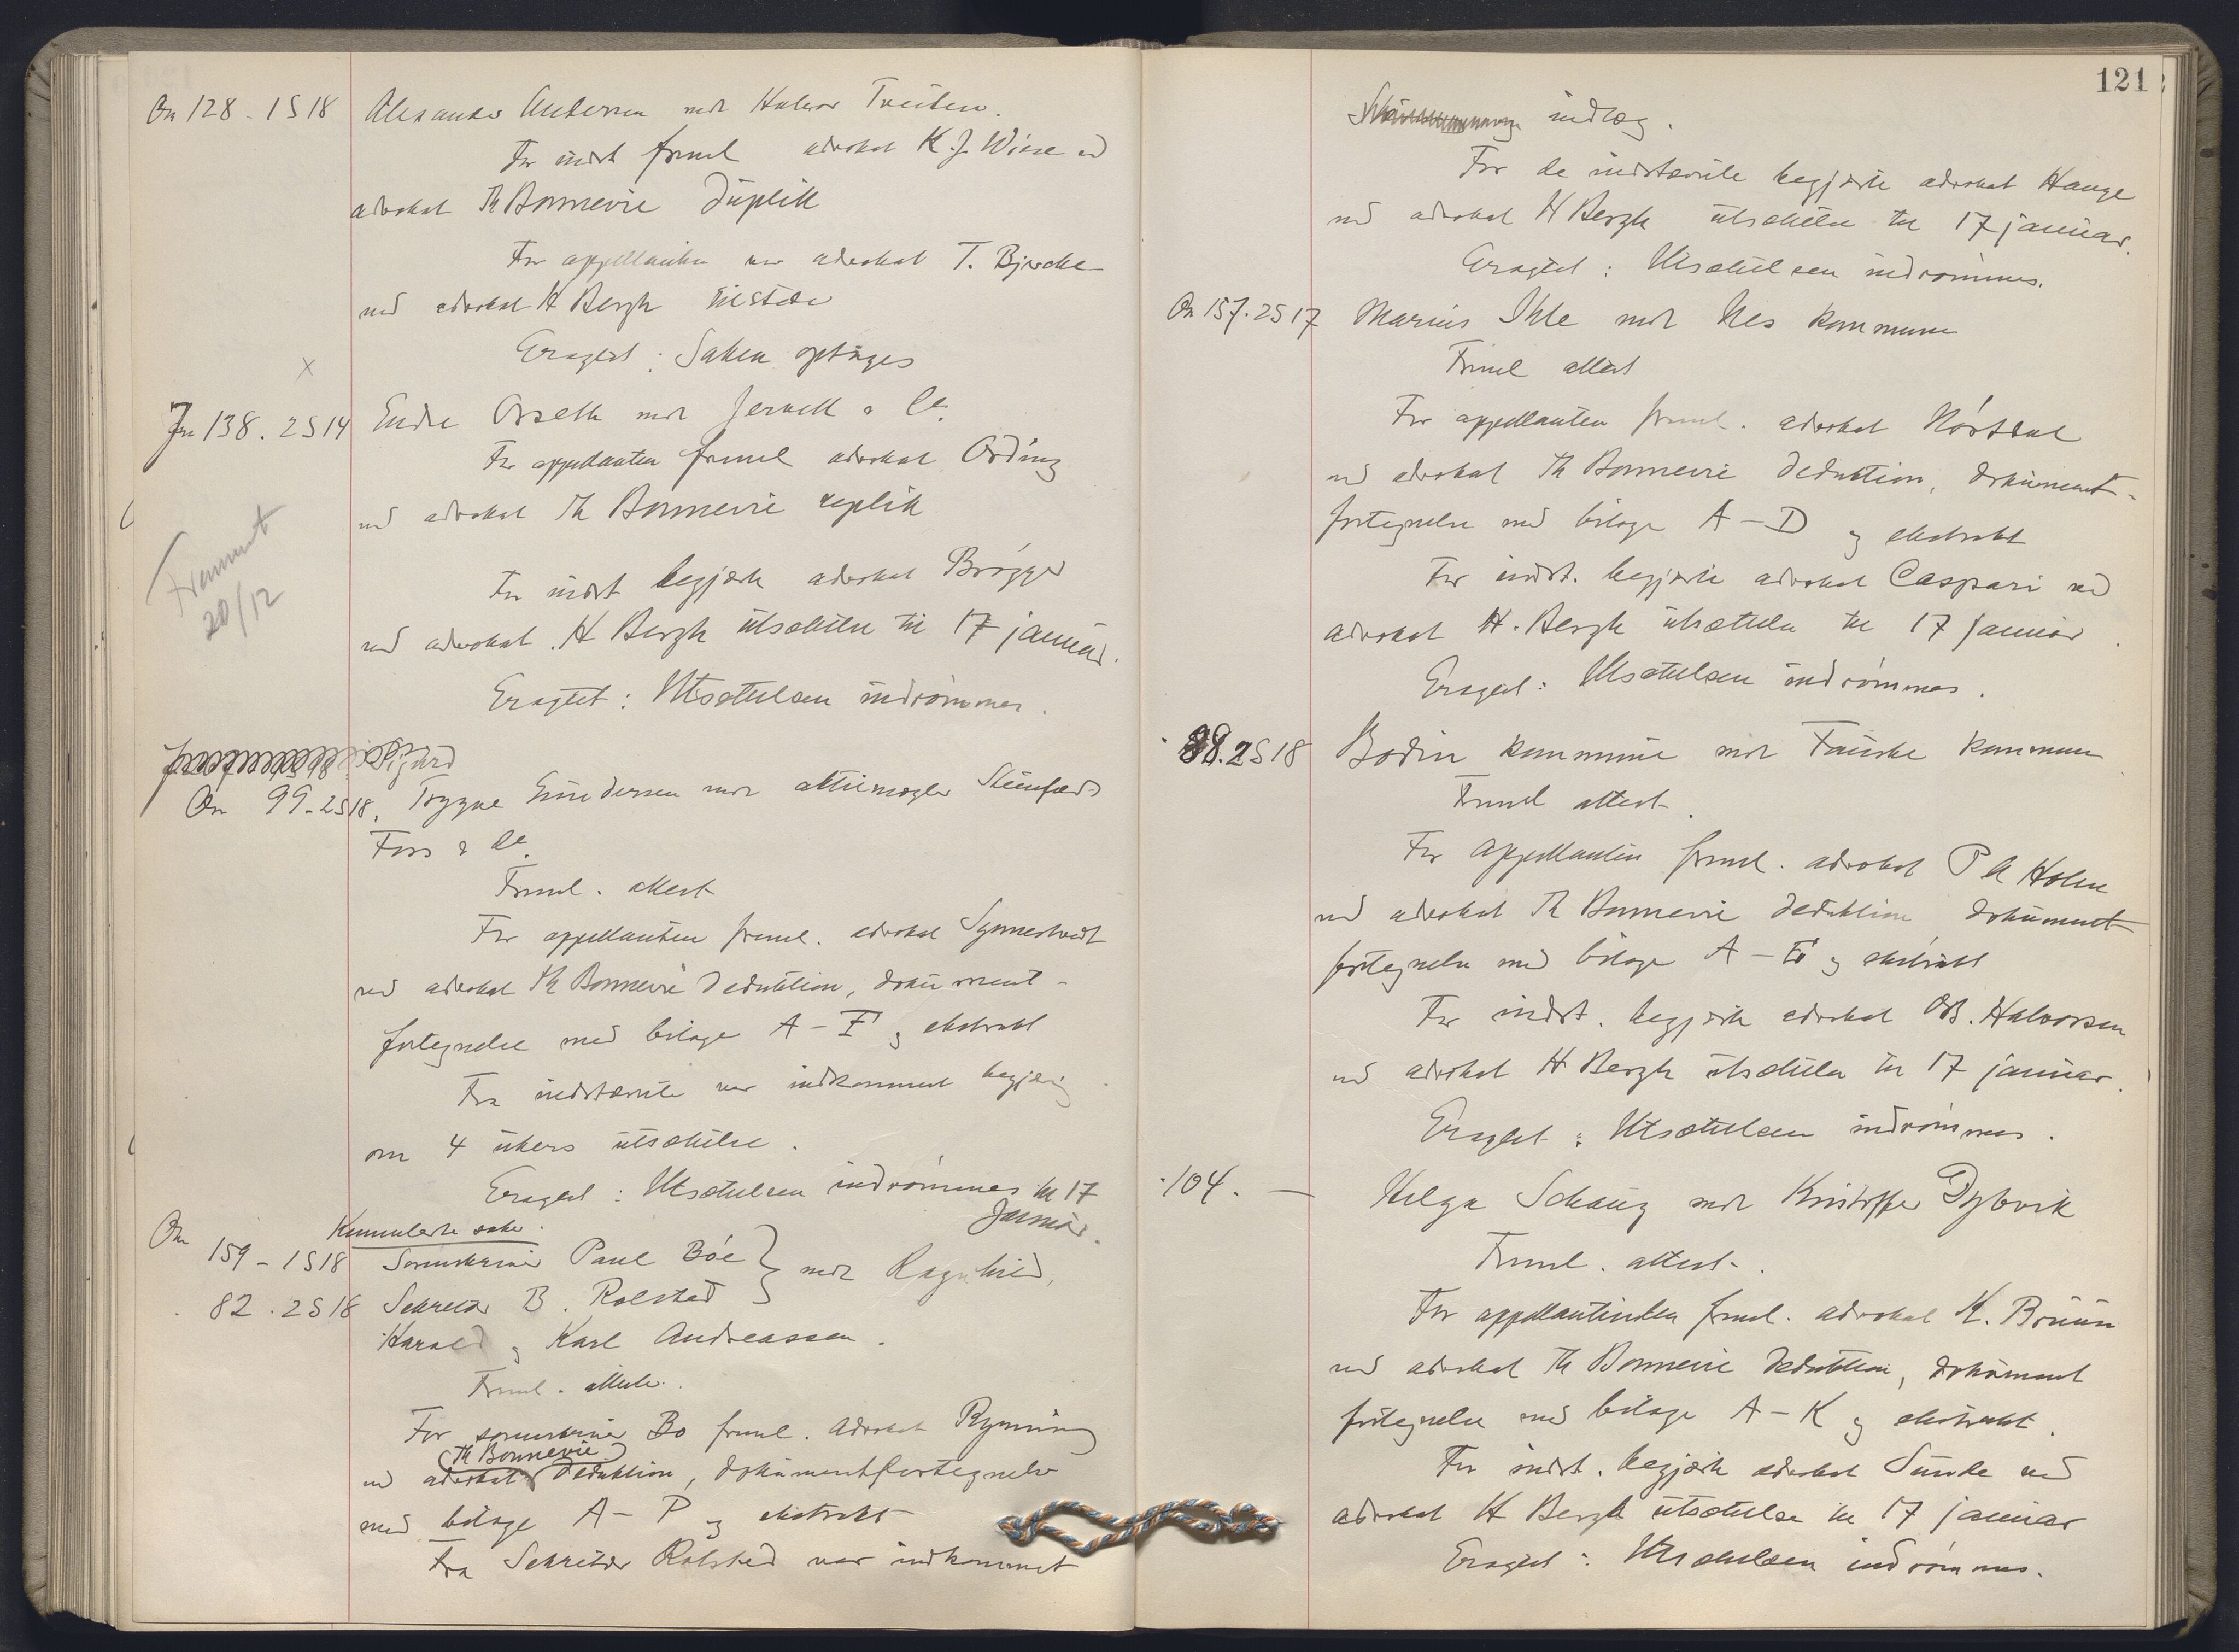 On 128 - 1 S 18 Alexander Andersen mot Halvor Treiten.
For indst freml advokat K. J. Wiese ved
advokat Th Bonnevie Duplik
For appellanten var advokat T. Bjercke
ved advokat H Bergh tilstede
Eragtet: Saken optages
x
Jn 138. 2 S 14 Endre Orseth mot Jervell & Co.
For appellanten freml advokat Ording
ved advokat Th Bonnevie replik
Fremmet
20/12
For indst begjærte advokat Brøgger
ved advokat H Bergh utsættelse til 17 januar.
Eragtet: Utsættelsen indrømmes.
Sigurd
On 99 - 2 S 18. Trygve Gundersen mot aktiemægler
Foss & Co.
Freml. attest
For appellanten freml. advokat Synnestvedt
ved advokat Th Bonnevie Deduktion, dokument-
fortegnelse med bilage A - F og ekstrakt
Fra indstævnte var indkommet begjæring
om 4 ukers utsættelse.
Eragtet: Utsættelsen indrømmes til 17
Januar.
Kumulerte saker.
On 159 - 1 S 18 Sorenskriver Paul Bøe } mot Ragnhild,
82. 2 S 18 Sekretær B. Rolsted
Harald og Karl Andreassen.
Freml. attester.
For sorenskriver Bø freml. advokat Rynning
(Th Bonnevie)
ved advokat Deduktion, dokumentfortegnelse
med bilage A - P og ekstrakt
Fra Sekretær Rolsted var indkommet
121
indlæg.
For de indstævnte begjærte advokat Hauge
ved advokat H Bergh utsættelse til 17 januar.
Eragtet: Utsættelsen indrømmes.
On 157. 2 S 17 Marius Ihle mot Nes kommune
Freml attest
For appellanten freml. advokat Nørstrud
ved advokat Th Bonnevie Deduktion, dokument-
fortegnelse med bilage A - D og ekstrakt
For indst. begjærte advokat Caspari ved
advokat H. Bergh utsættelse til 17 januar.
Eragtet: Utsættelsen indrømmes.
88. 2 S 18 Bodin kommune mot Fauske kommune
Freml attest.
For appellanten freml. advokat P A Holm
ved advokat Th Bonnevie deduktion dokument
fortegnelse med bilage A - og ekstrakt
For indst. begjærte advokat O B. Halvorsen
ved advokat H Bergh utsættelse til 17 januar.
Eragtet: Utsættelsen indrømmes.
104. — Helga Schanz mot Kristoffer Dybvik
Freml. attest.
For appellantinden freml. advokat K. Bruun
ved advokat Th Bonnevie Deduktion, dokument
fortegnelse med bilage A - K og ekstrakt.
For indst. begjærte advokat Sunde ved
advokat H Bergh utsættelse til 17 januar
Eragtet: Utsættelsen indrømmes.